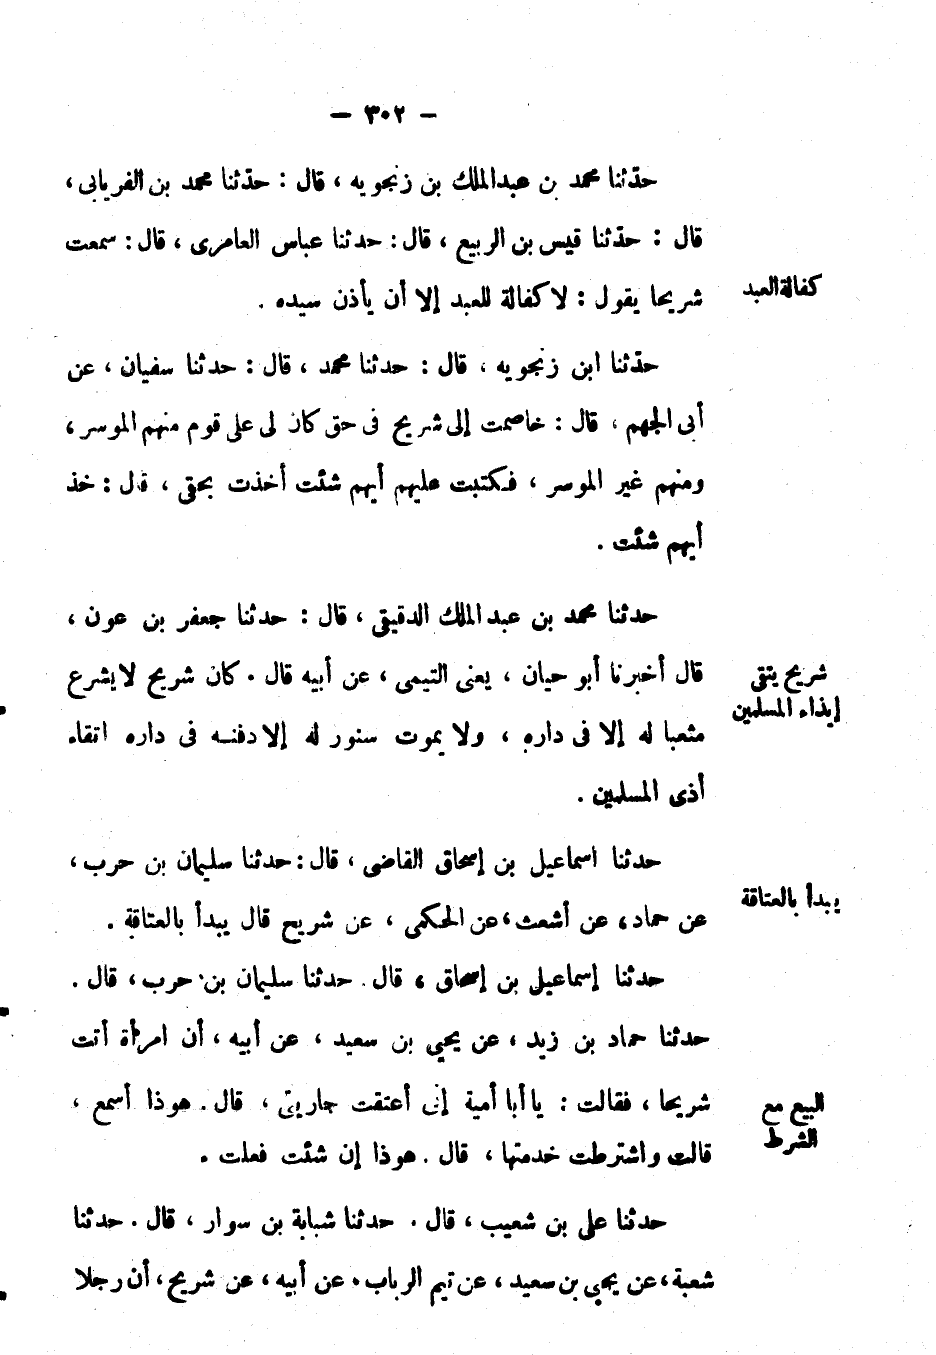 — ٣٠٢ —
حدّثنا محمد بن عبدالملك بن زنجويه ، قال : حدّثنا محمد بن الفريابى ،
قال : حدّثنا قيس بن الربيع ، قال : حدثنا عباس العامرى ، قال : سمعت
كفالة العبد
شريحا يقول : لا كفالة للعبد إلا أن يأذن سيده .
حدّثنا ابن زنجويه ، قال : حدثنا محمد ، قال : حدثنا سفيان ، عن
أبى الجهم ، قال : خاصمت إلى شريح فى حق كان لى على قوم منهم الموسر ،
ومنهم غير الموسر ، فكتبت عليهم أيهم شئت أخذت بحقى ، قال : خذ
أيهم شئت .
حدثنا محمد بن عبد الملك الدقيقى ، قال : حدثنا جعفر بن عون ،
قال أخبرنا أبو حيان ، يعنى التيمى ، عن أبيه قال . كان شريح لا يشرع
شريح يتقى
إيذاء المسلمين
مثعبا له إلا فى داره ، ولا يموت سنور له إلا دفنه فى داره اتقاء
أذى المسلمين .
حدثنا اسماعيل بن إسحاق القاضى ، قال : حدثنا سليمان بن حرب ،
يبدأ بالعتاقة
عن حماد ، عن أشعث ، عن الحكمى ، عن شريح قال يبدأ بالعتاقة .
حدثنا إسماعيل بن إسحاق ، قال . حدثنا سليمان بن حرب ، قال .
حدثنا حماد بن زيد ، عن يحيى بن سعيد ، عن أبيه ، أن امرأة أتت
شريحا ، فقالت : يا أبا أمية إنى أعتقت جاريتى ، قال . هوذا أسمع ،
البيع مع
الشرط
قالت واشترطت خدمتها ، قال . هوذا إن شئت فعلت .
حدثنا على بن شعيب ، قال . حدثنا شبابة بن سوار ، قال . حدثنا
شعبة ، عن يحيى بن سعيد ، عن تيم الرباب . عن أبيه ، عن شريح ، أن رجلا